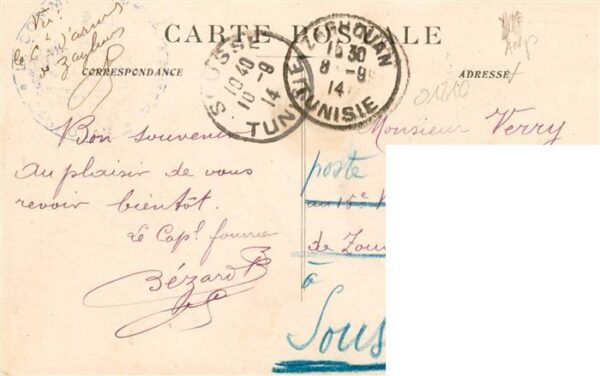 Vu
à
CARTE POSTALE
CORRESPONDANCE
ADRESSE
SOUSSE
10 40
10 -9
14
TUNISIE
ZAGHOUAN
15 30
8 -9
14
TUNISIE
Bon souvenir
au plaisir de vous
revoir bientôt.
Le Capl. fourrier
Bézard
Monsieur Verry
poste
au 15e
de Zou
à
Sous